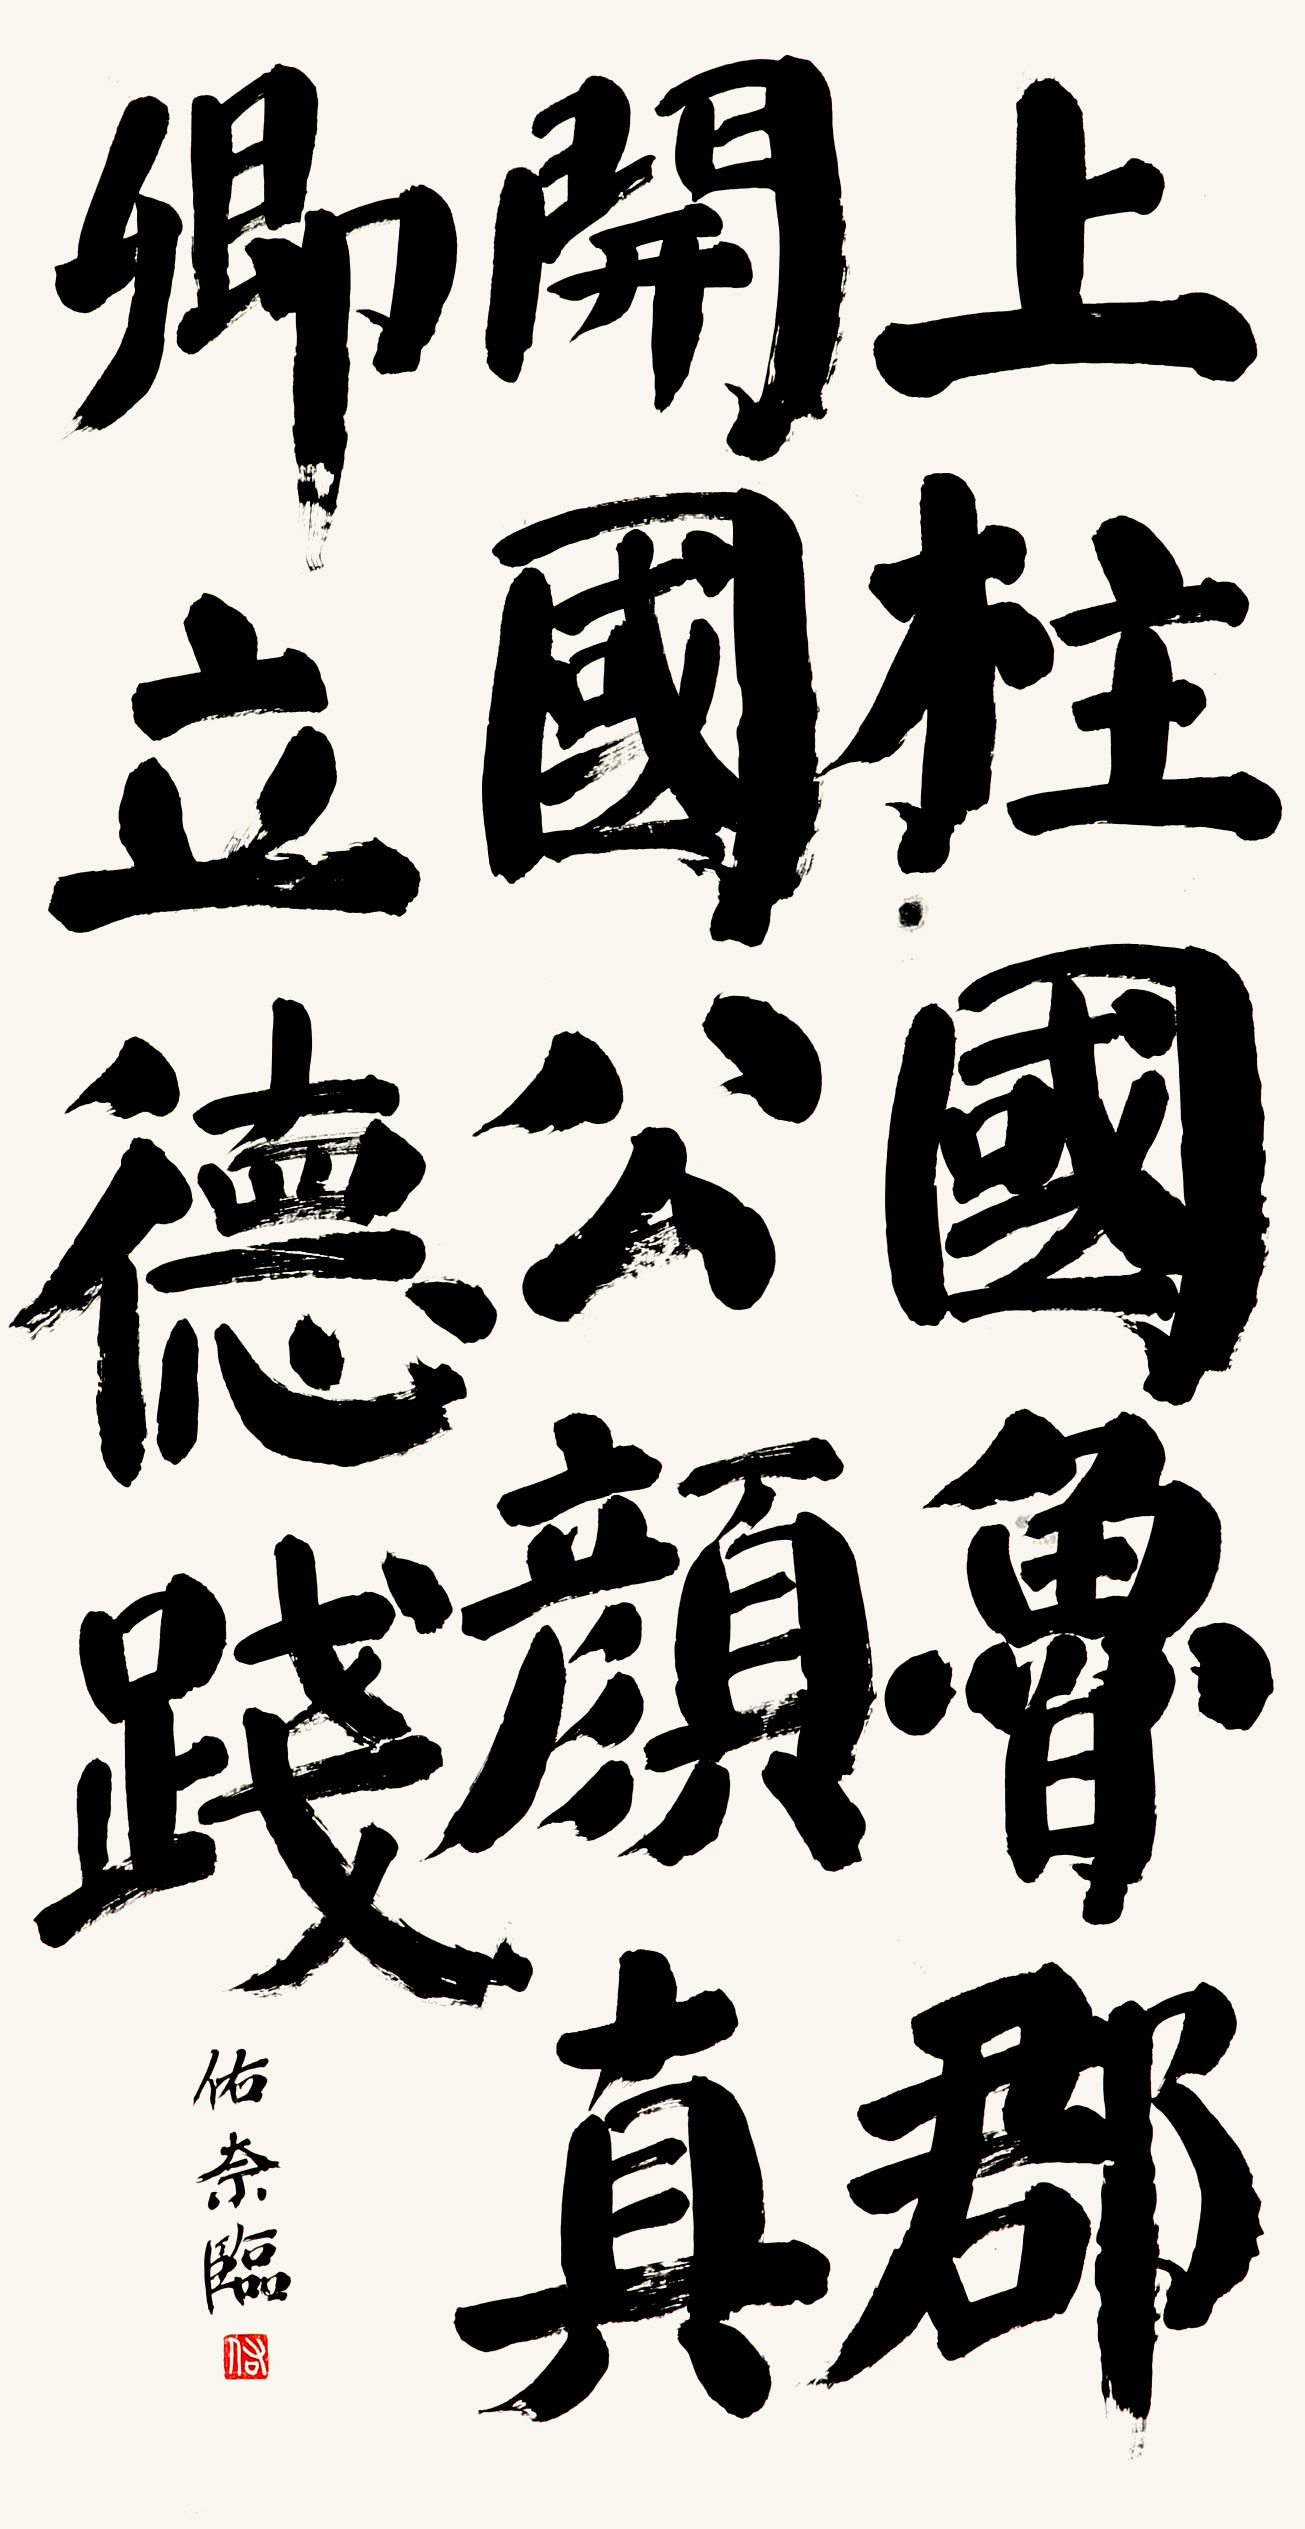 上柱國魯郡
開國公顔真
卿立德踐
佑奈臨
佑